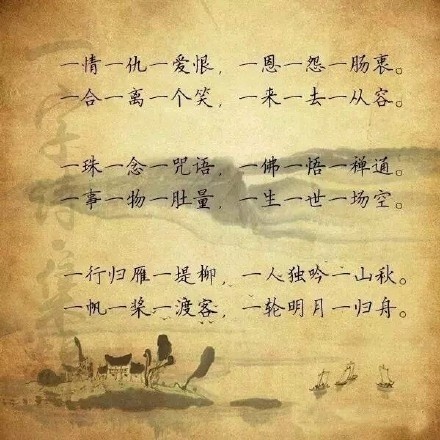 一情一仇一爱恨，一恩一怨一肠衷。
一合一离一个笑，一来一去一从容。
一珠一念一咒语，一佛一悟一禅通。
一事一物一肚量，一生一世一场空。
一行归雁一堤柳，一人独吟一山秋。
一帆一桨一渡客，一轮明月一归舟。